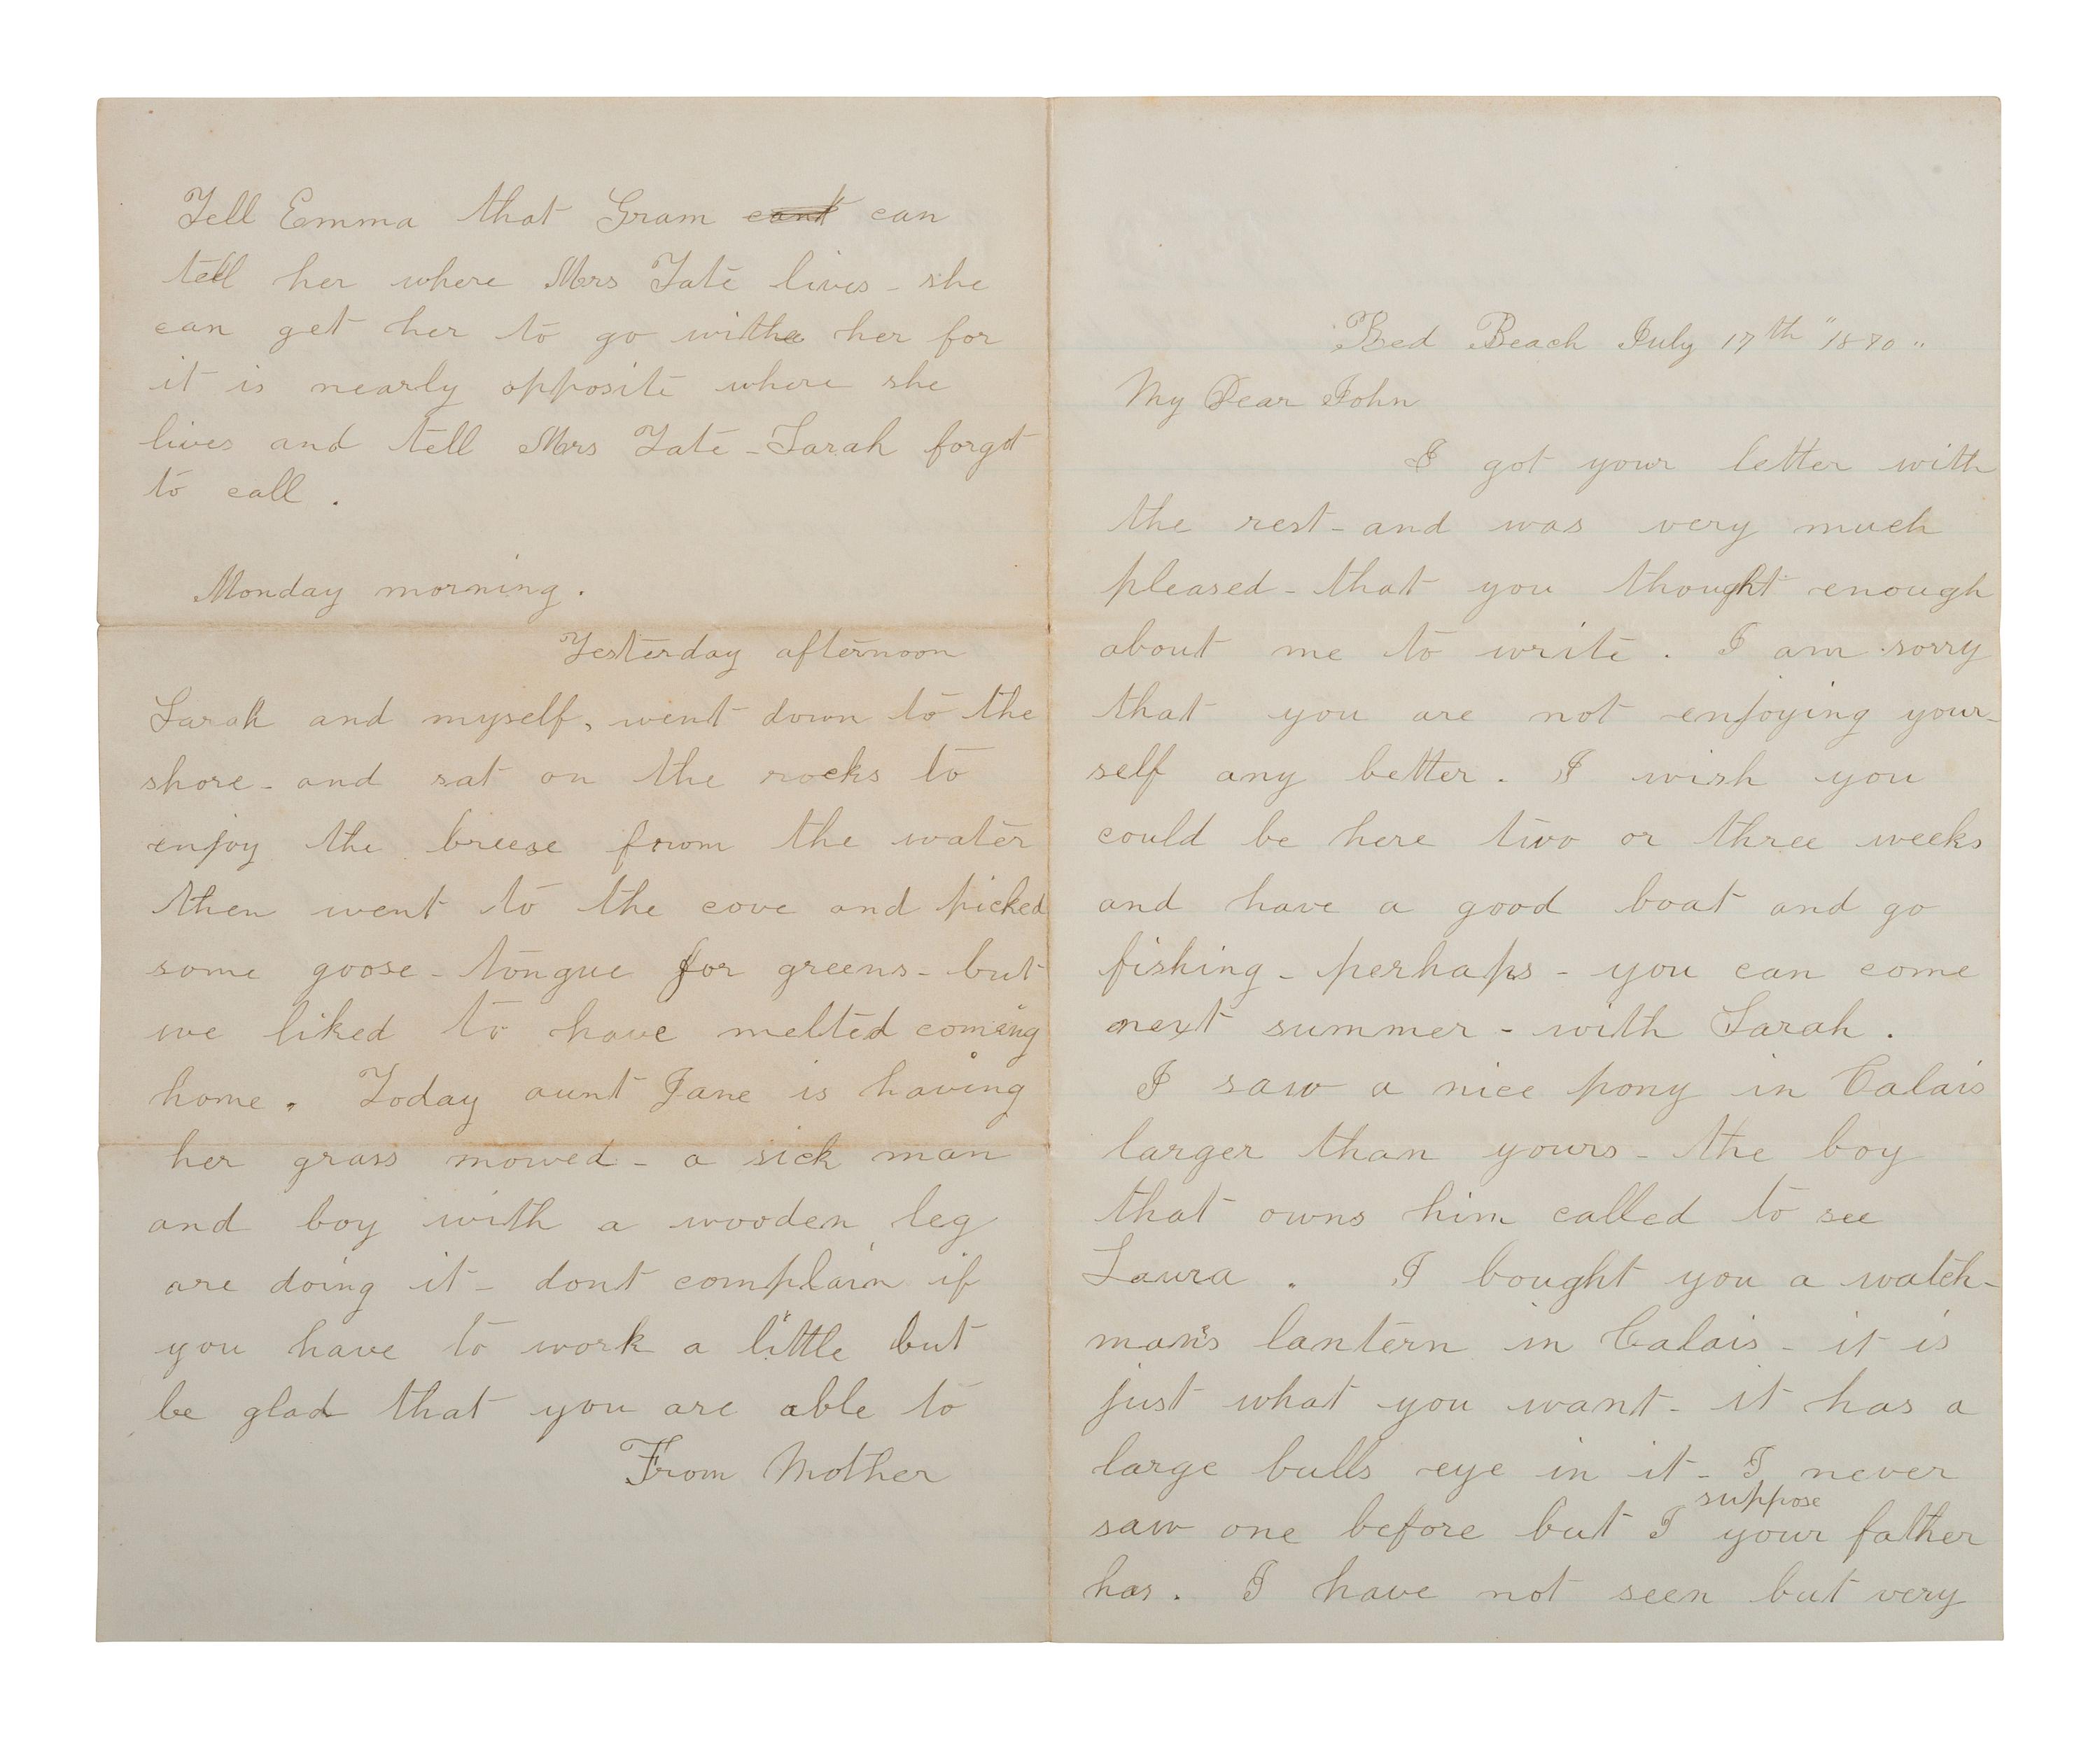 Red Beach July 17th "1870"
My Dear John
I got your letter with
the rest - and was very much
pleased - that you thought enough
about me to write . I am sorry
that you are not enjoying your-
self any better . I wish you
could be here two or three weeks
and have a good boat and go
fishing - perhaps - you can come
next summer - with Sarah .
I saw a nice pony in Calais
larger than yours - the boy
that owns him called to see
Laura . I bought you a watch-
man's lantern in Calais - it is
just what you want - it has a
large bulls eye in it - I never
saw one before but I suppose your father
has . I have not seen but very
Tell Emma that Gram cant can
tell her where Mrs Tate lives - she
can get her to go with her for
it is nearly opposite where she
lives and tell Mrs Tate - Sarah forgot
to call .
Monday morning .
Yesterday afternoon
Sarah and myself, went down to the
shore - and sat on the rocks to
enjoy the breese from the water
then went to the cove and picked
some goose - tongue for greens - but
we liked to have melted coming
home . Today aunt Jane is having
her grass mowed - a sick man
and boy with a wooden leg
are doing it - dont complain if
you have to work a little but
be glad that you are able to
From Mother